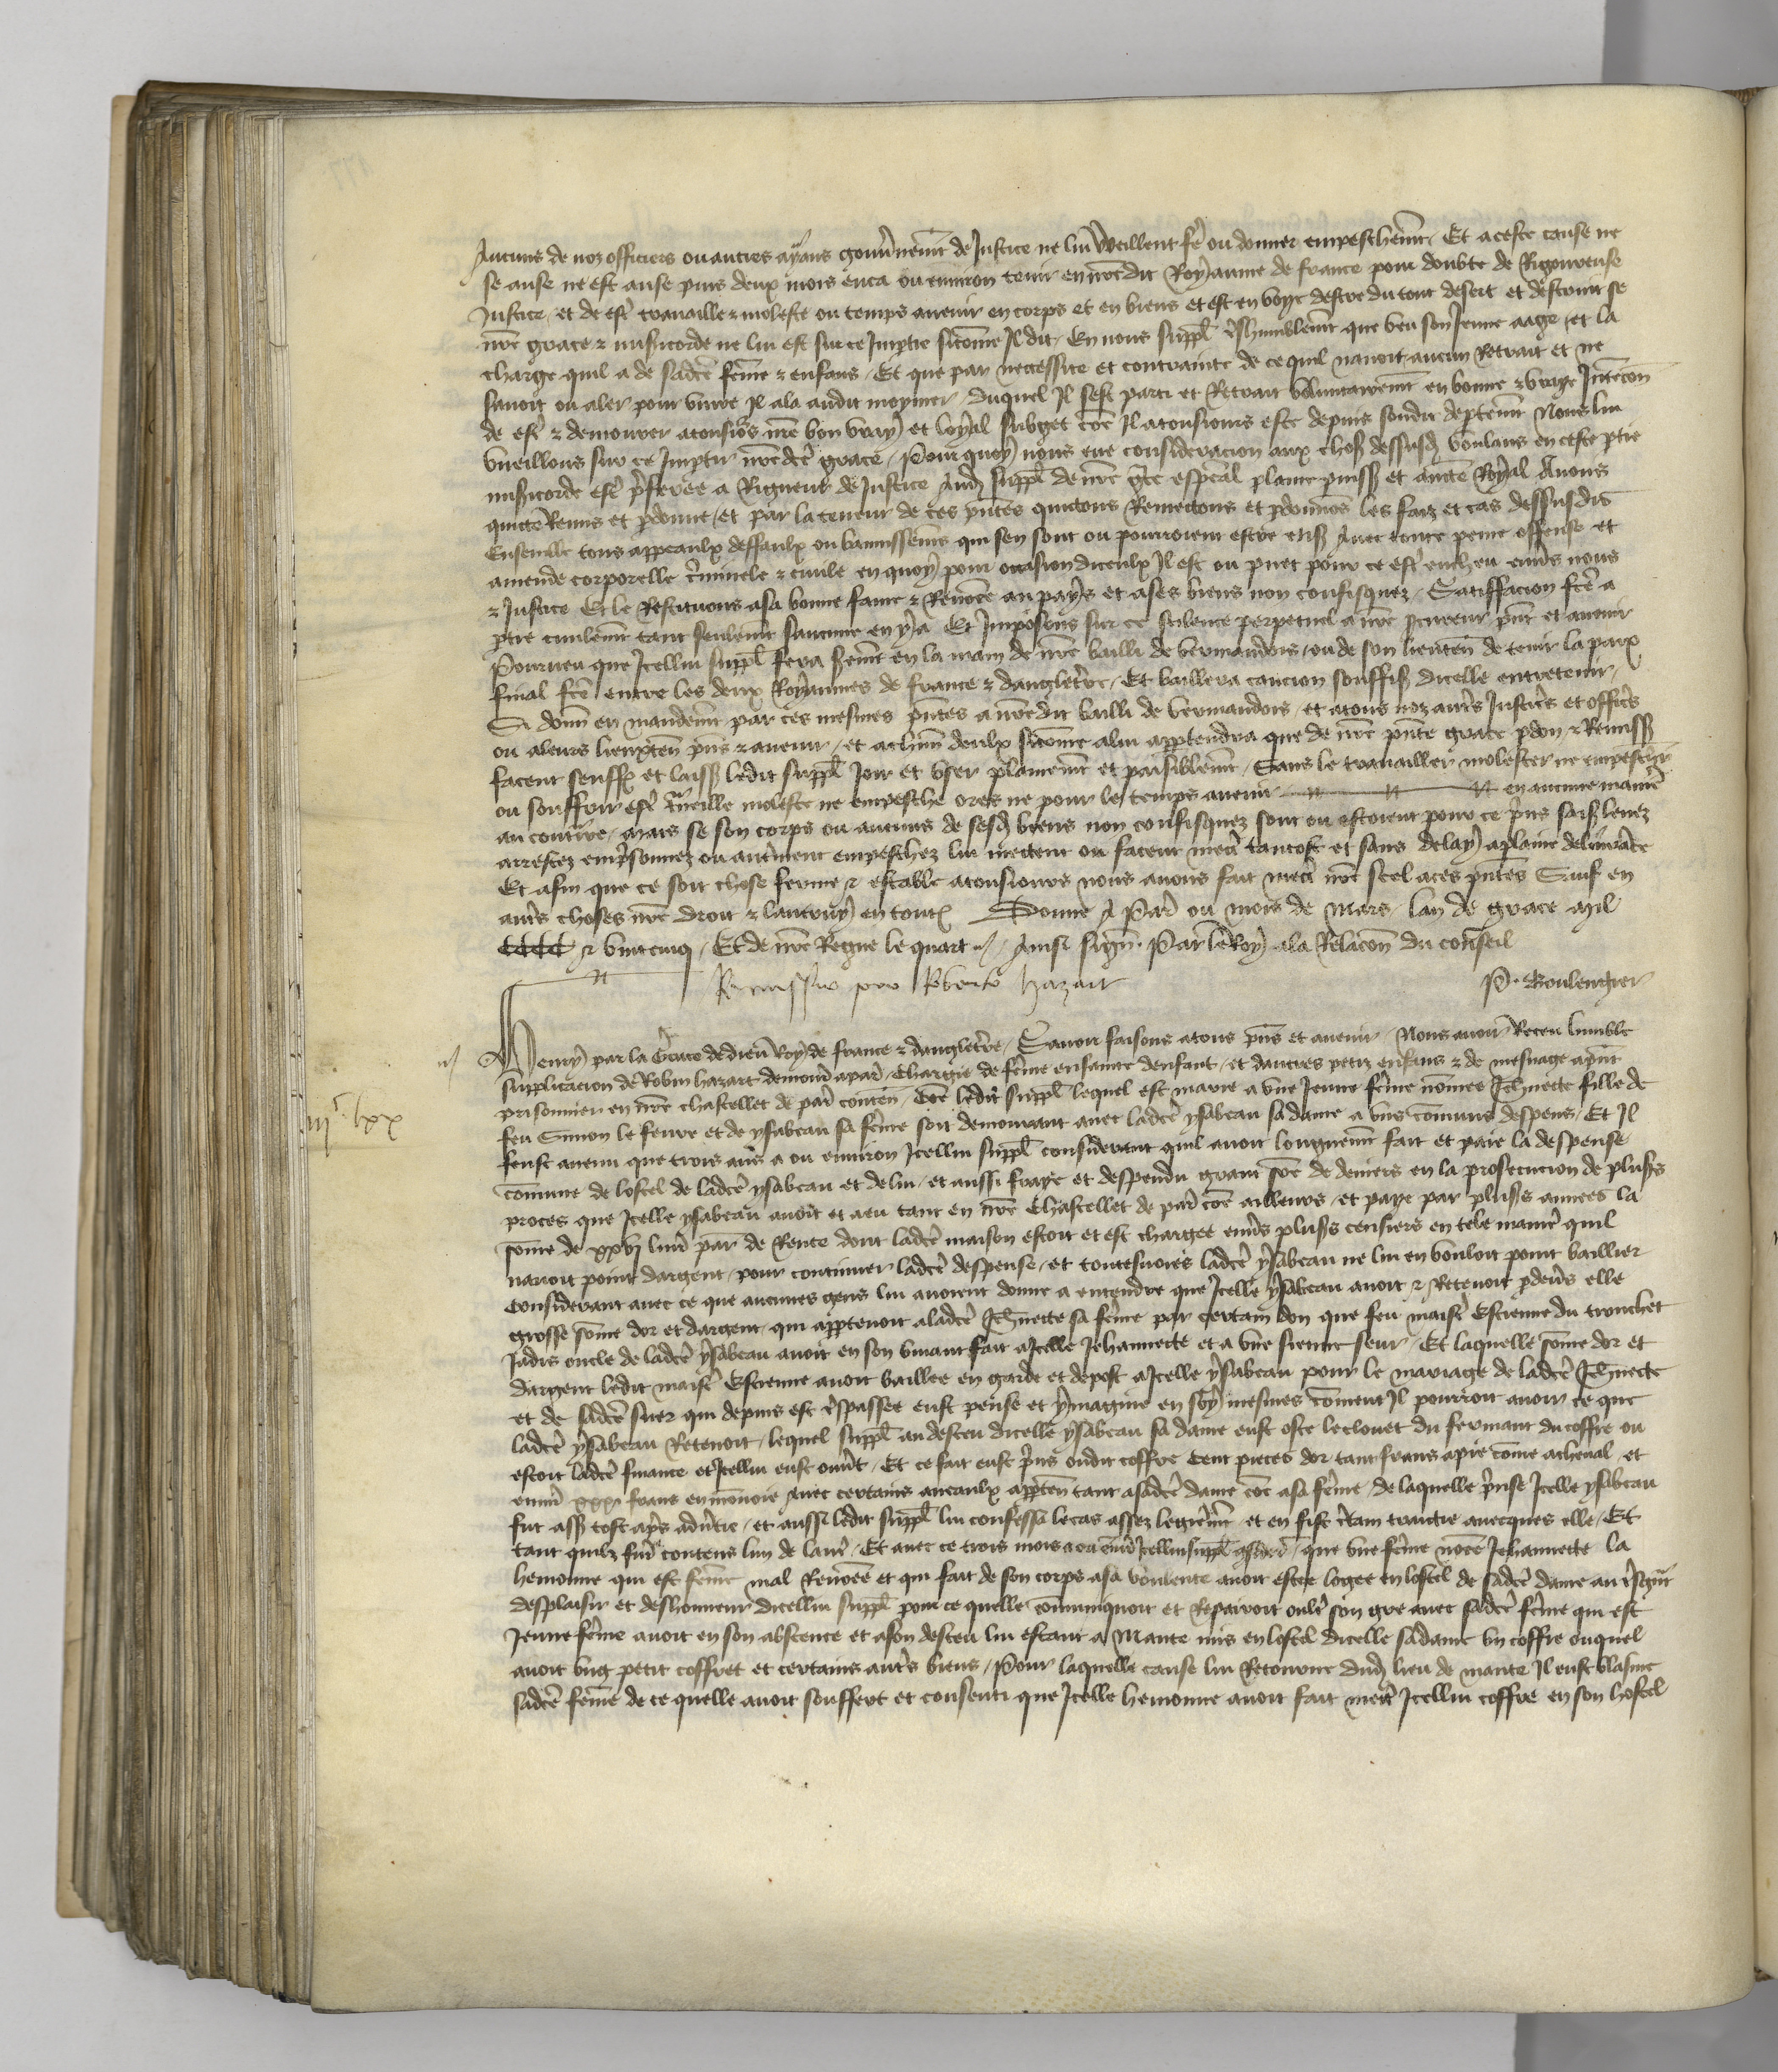 Aucuns de noz officiers ou autres ayans gouvnement de Justice ne lui vueillent fe ou donner empeschement Et a ceste cause ne
se ause ne est ause puis deux mois enca ou environ tenir en nredit Royaume de france pour doubte de Rigoureuse
Justice et de estre travaille & moleste ou temps avenir en corps et en biens et est en voye destre du tout desert et destruit se
nre grace & misicorde ne lui est sur ce Impartie sicomme Il dit En nous suppl humblement que veu son Jeune aage et la
charge quil a de sadce feme & enfans Et que par necessite et contrainte de ce quil navoit aucun Retrait et ne
savoit ou aler pour vivre Il ala audit moymer duquel Il sest parti et Retrait voluntairement en bonne & vraye Intencon
de estre & demourer atousiours nre bon vray et loyal subget coe Il atousiours este depuis sondit deptement Nous lui
vueillons sur ce Impartir nredce grace Pour quoy nous eue consideracion aux choses dessusd voulans en ceste ptie
misicorde estre preferee a Rigueur de Justice Aud suppl de nre gre especial plaine puiss et aucte Royal Avons
quicte Remis et pdonne et par la teneur de ces pntes quictons Remectons et pdonnons les faiz et cas dessusdis
Ensemble tous appeaulx deffaulx ou bannissemens qui sen sont ou pourroient estre ensuis Avec toute peine offense et
amende corporelle criminele & civile en quoy pour occasion diceulx Il est ou puet pour ce estre encheu envers nous
& Justice Et le Restituons asa bonne fame & Renomee au pays et ases biens non confisquez Satisfacion fce a
ptie civilement tant seulement saucune en y a Et Imposons sur ce silence perpetuel a nre pcureur pnt et avenir
Pourveu que Icellui suppl fera serment en la main de nre bailli de vermandois ou de son lieuten de tenir la paix
final fce entre les deux Royaumes de france & dangleterre Et baillera caucion souffis dicelle entretenir
Si donn en mandement par ces mesmes pntes a nredit bailli de vermandois et atous noz autres Justiciers et officiers
ou aleurs lieuxten pns & avenir et achun deulx sicomme alui apptendra que de nre pnte grace pdon & Remiss
facent seuffr et laiss ledit suppl Joir et user plainement et paisiblement Sans le travailler molester ne empescher
ou souffrir estre traveille moleste ne empesche ores ne pour le temps avenir en aucune manie
au contraire mais se son corps ou aucuns de sesd biens non confisquez sont ou estoient pour ce pris saisis levez
arrestez emprisonnez ou autrement empeschez lui mectent ou facent mectre tantost et sans delay aplaine delivrance
Et afin que ce soit chose ferme & estable atousiours nous avons fait mectre nre seel aces pntes Sauf en
autres choses nre droit & lautruy en toutes Donne A Paris ou mois de Mars lan de grace mil
CCCC & vintcinq Et de nre Regne le quart Ainsi sign Par le Roy ala Relacon du conseil
Remissio pro Roberto hazart P. Boulengier
Henry par la Grace de dieu Roy de france & dangleterre Savoir faisons atous pns et avenir Nous avoir Receu lumble
supplicacion de Robin hazart demour apar Chargie de feme ensainte denfant et dautres petiz enfans & de mesnage apnt
iijc lxx
prisonnier en nre chastellet de par conten Coe ledit suppl lequel est marie a une Jeune feme nommee Jehnnette fille de
feu Simon le feuvre et de ysabeau sa feme soit demourant avec ladce ysabeau sa dame a uns communs despens Et Il
feust avenu que trois ans a ou environ Icellui suppl considerant quil avoit longuement fait et paie la despense
comune de lostel de ladce ysabeau et de lui et aussi fraye et despendu grant soe de deniers en la prosecucion de plusrs
proces que Icelle ysabeau avoit et a eu tant en nre Chastellet de par coe ailleurs et paye par plusrs annees la
somme de xxvj livr par de Rente dont ladce maison estoit et est chargee envers plusrs censiers en tele manier quil
navoit point dargent pour continuer ladce despense et toutesvoies ladce ysabeau ne lui en vouloit point baillier
Considerant avec ce que aucunes gens lui avoient donne a entendre que Icelle ysabeau avoit & Retenoit pdevers elle
grosse somme dor et dargent qui apptenoit aladce Jehnnette sa feme par certain don que feu maistre Estienne du tronchet
Jadis oncle de ladce ysabeau avoit en son vivant fait aIcelle Jehannette et a une sienne seur Et laquelle somme dor et
dargent ledit maistre Estienne avoit baillee en garde et depost a Icelle ysabeau pour le mariage de ladce Jehnnette
et de sadce suer qui depuis est trespassee eust pense et ymagine en soy mesmes coment Il pourroit avoir ce que
ladce ysabeau Retenoit lequel suppl au desceu dicelle ysabeau sa dame eust oste le clouet du fermant du coffre ou
estoit ladce finance et Icellui eust ouvert Et ce fait eust pris oudit coffre Cent pieces dor tant frans apie come acheval et
environ xxxj frans en monnoie Avec certains aneaulx apparten tant asadce dame coe asa feme de laquelle prise Icelle ysabeau
fut assez tost apres advertie et aussi ledit suppl lui confessa le cas assez legierement et en fist certain traictie avecques elle Et
tant quilz fur contens lun de lautre Et avec ce trois mois a ou envir Icellui suppl que une feme nomee Jehannette la
hemonne qui est feme mal Renomee et qui fait de son corps asa voulente avoit estee logee en lostel de sadce dame au tresgrt
desplaisir et deshonneur dicellui suppl pour ce quelle communiquoit et Repairoit oultre son gre avec sadce feme qui est
Jeune feme avoit en son absence et a son desceu lui estant a Mante mis en lostel dicelle sadame un coffre ouquel
avoit ung petit coffret et certains autres biens Pour laquelle cause lui Retourne dud lieu de mante Il eust blasme
sadce feme de ce quelle avoit souffert et consenti que Icelle hemonne avoit fait mectre Icellui coffre en son hostel